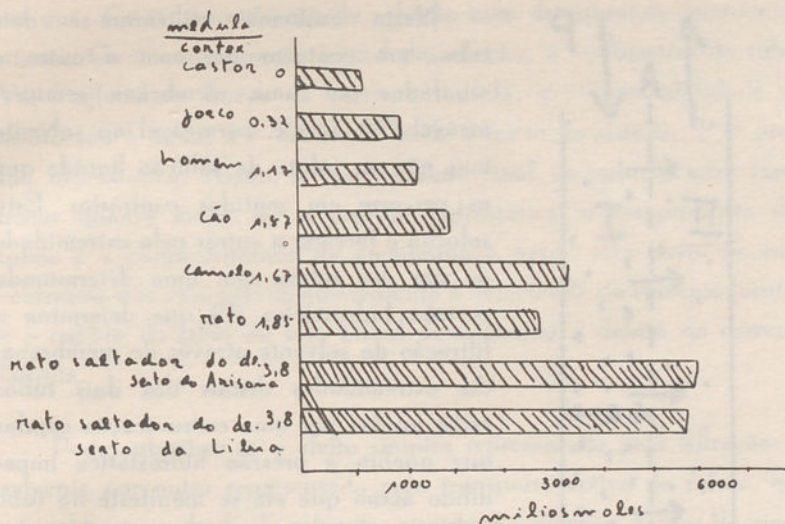 medula
cortex
castor 0
porco 0.32
homem 1,17
cão 1,87
camelo 1,67
rato 1,85
rato saltador do de- 3,8
serto do Arisona
rato saltador do de- 3,8
serto da Libia
1000 3000 6000
miliosmoles